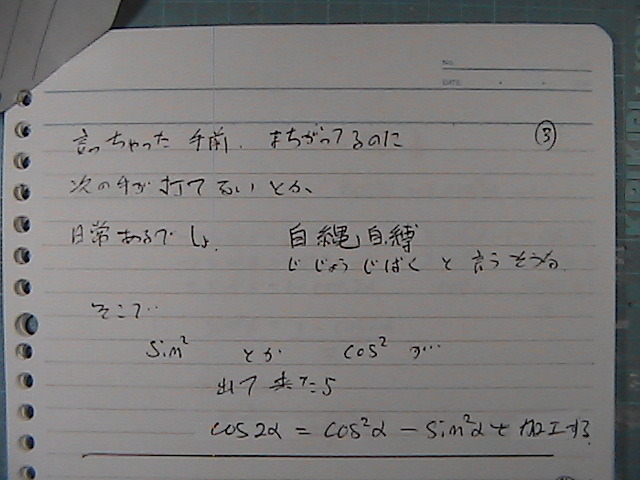 NO.
DATE
③
言っちゃった手前、まちがってるのに
次の手が打てないとか、
日常あるでしょ. 自縄自縛
じじょうじばく と言うそうな.
そこで…
sin² とか cos² が…
出て来たら
cos2α = cos²α − sin²α と加工する.